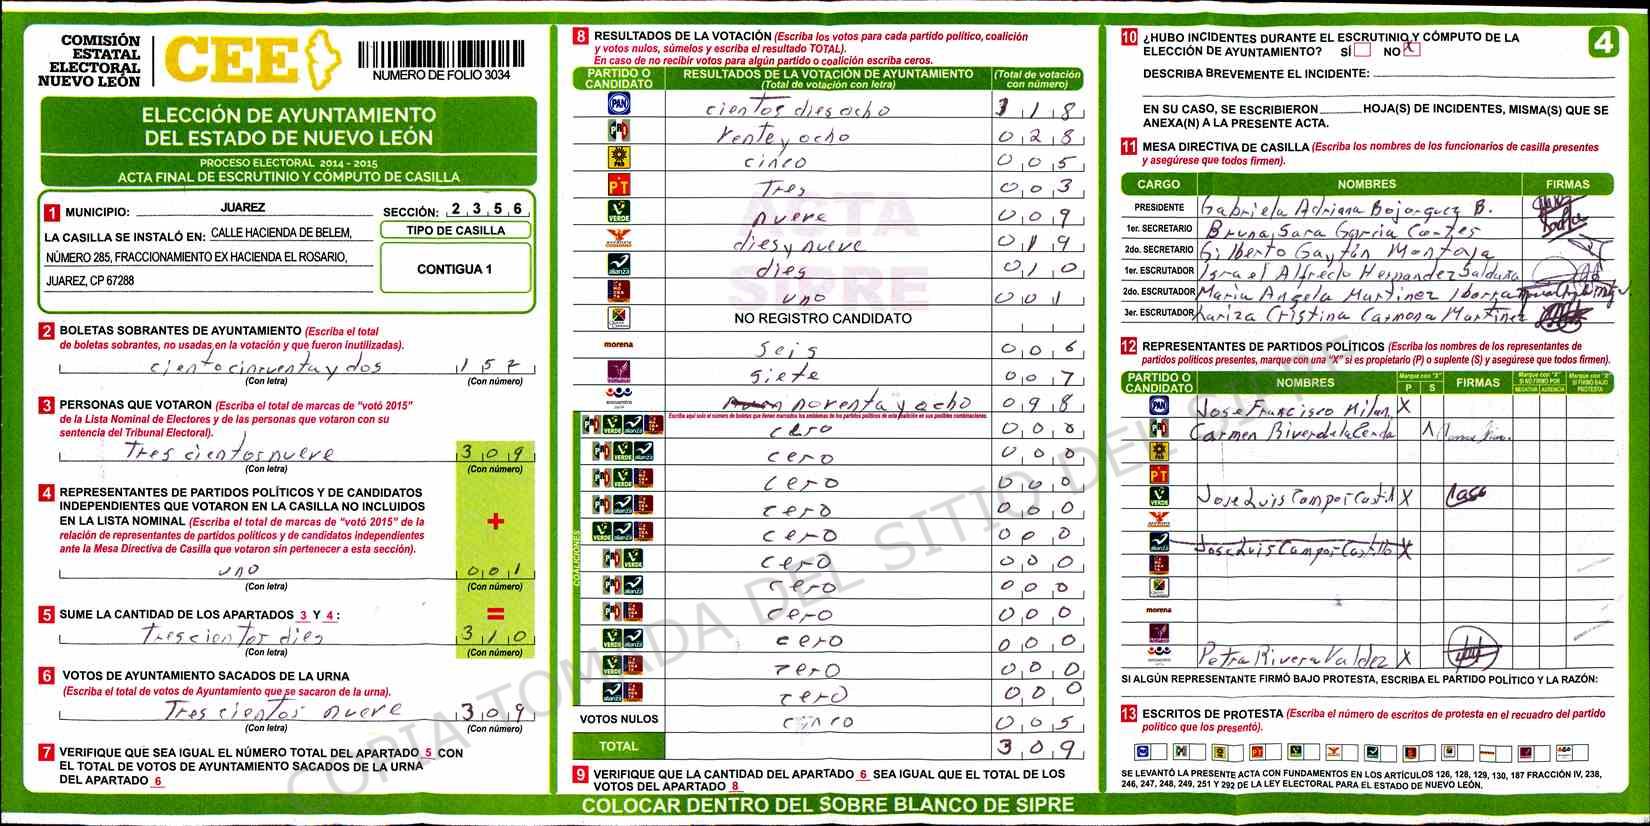 COMISIÓN
ESTATAL
ELECTORAL
NUEVO LEÓN
CEE
NUMERO DE FOLIO 3034
ELECCIÓN DE AYUNTAMIENTO
DEL ESTADO DE NUEVO LEÓN
PROCESO ELECTORAL 2014 - 2015
ACTA FINAL DE ESCRUTINIO Y CÓMPUTO DE CASILLA
1 MUNICIPIO: JUAREZ SECCIÓN: 2 3 5 6
LA CASILLA SE INSTALÓ EN: CALLE HACIENDA DE BELEM,
NÚMERO 285, FRACCIONAMIENTO EX HACIENDA EL ROSARIO,
JUAREZ, CP 67288
TIPO DE CASILLA
CONTIGUA 1
2 BOLETAS SOBRANTES DE AYUNTAMIENTO (Escriba el total
de boletas sobrantes, no usadas en la votación y que fueron inutilizadas).
ciento cincuenta y dos 1 5 2
(Con letra) (Con número)
3 PERSONAS QUE VOTARON (Escriba el total de marcas de "votó 2015"
de la Lista Nominal de Electores y de las personas que votaron con su
sentencia del Tribunal Electoral).
Tres cientos nueve 3 0 9
(Con letra) (Con número)
4 REPRESENTANTES DE PARTIDOS POLÍTICOS Y DE CANDIDATOS
INDEPENDIENTES QUE VOTARON EN LA CASILLA NO INCLUIDOS
EN LA LISTA NOMINAL (Escriba el total de marcas de "votó 2015" de la
relación de representantes de partidos políticos y de candidatos independientes
ante la Mesa Directiva de Casilla que votaron sin pertenecer a esta sección).
+
uno 0 0 1
(Con letra) (Con número)
5 SUME LA CANTIDAD DE LOS APARTADOS 3 Y 4 :
=
Tres cientos dies 3 1 0
(Con letra) (Con número)
6 VOTOS DE AYUNTAMIENTO SACADOS DE LA URNA
(Escriba el total de votos de Ayuntamiento que se sacaron de la urna).
Tres cientos nueve 3 0 9
(Con letra) (Con número)
7 VERIFIQUE QUE SEA IGUAL EL NÚMERO TOTAL DEL APARTADO 5 CON
EL TOTAL DE VOTOS DE AYUNTAMIENTO SACADOS DE LA URNA
DEL APARTADO 6
8 RESULTADOS DE LA VOTACIÓN (Escriba los votos para cada partido político, coalición
y votos nulos, súmelos y escriba el resultado TOTAL).
En caso de no recibir votos para algún partido o coalición escriba ceros.
PARTIDO O CANDIDATO RESULTADOS DE LA VOTACIÓN DE AYUNTAMIENTO (Total de votación con letra) (Total de votación con número)
PAN cientos dies ocho 1 1 8
PRI Vente y ocho 0 2 8
PRD cinco 0 0 5
PT Tres 0 0 3
VERDE nueve 0 0 9
dies y nueve 0 1 9
alianza dies 0 1 0
uno 0 0 1
NO REGISTRO CANDIDATO
morena seis 0 0 6
siete 0 0 7
encuentro noventa y ocho 0 9 8
COALICIONES
cero 0 0 0
cero 0 0 0
cero 0 0 0
cero 0 0 0
cero 0 0 0
cero 0 0 0
cero 0 0 0
cero 0 0 0
cero 0 0 0
zero 0 0 0
zero 0 0 0
VOTOS NULOS cinco 0 0 5
TOTAL 3 0 9
9 VERIFIQUE QUE LA CANTIDAD DEL APARTADO 6 SEA IGUAL QUE EL TOTAL DE LOS
VOTOS DEL APARTADO 8
ACTA
SIPRE
COPIA TOMADA DEL SITIO DEL SIPRE
COLOCAR DENTRO DEL SOBRE BLANCO DE SIPRE
4
10 ¿HUBO INCIDENTES DURANTE EL ESCRUTINIO Y CÓMPUTO DE LA
ELECCIÓN DE AYUNTAMIENTO? SÍ NO X
DESCRIBA BREVEMENTE EL INCIDENTE:
EN SU CASO, SE ESCRIBIERON HOJA(S) DE INCIDENTES, MISMA(S) QUE SE
ANEXA(N) A LA PRESENTE ACTA.
11 MESA DIRECTIVA DE CASILLA (Escriba los nombres de los funcionarios de casilla presentes
y asegúrese que todos firmen).
CARGO NOMBRES FIRMAS
PRESIDENTE Gabriela Adriana Bojorquez B.
1er. SECRETARIO Bruna Sara Garcia Cortes
2do. SECRETARIO Gilberto Gaytán Montoja
1er. ESCRUTADOR Israel Alfredo Hernandez Salduña
2do. ESCRUTADOR Maria Angela Martinez Ibarra
3er. ESCRUTADOR Kariza Cristina Carmona Martinez
12 REPRESENTANTES DE PARTIDOS POLÍTICOS (Escriba los nombres de los representantes de
partidos políticos presentes, marque con una "X" si es propietario (P) o suplente (S) y asegúrese que todos firmen).
PARTIDO O CANDIDATO NOMBRES Marque con "X" P S FIRMAS Marque con "X" SI NO FIRMÓ POR NEGATIVA AUSENCIA Marque con "X" SI FIRMÓ BAJO PROTESTA
PAN Jose Francisco Milan X
PRI Carmen Rivera de la Cerda
VERDE Jose Luis Campos Castillo X
alianza Jose Luis Campos Castillo X
morena
encuentro Petra Rivera Valdez X
SI ALGÚN REPRESENTANTE FIRMÓ BAJO PROTESTA, ESCRIBA EL PARTIDO POLÍTICO Y LA RAZÓN:
13 ESCRITOS DE PROTESTA (Escriba el número de escritos de protesta en el recuadro del partido
político que los presentó).
SE LEVANTÓ LA PRESENTE ACTA CON FUNDAMENTOS EN LOS ARTÍCULOS 126, 128, 129, 130, 187 FRACCIÓN IV, 238,
246, 247, 248, 249, 251 Y 292 DE LA LEY ELECTORAL PARA EL ESTADO DE NUEVO LEÓN.